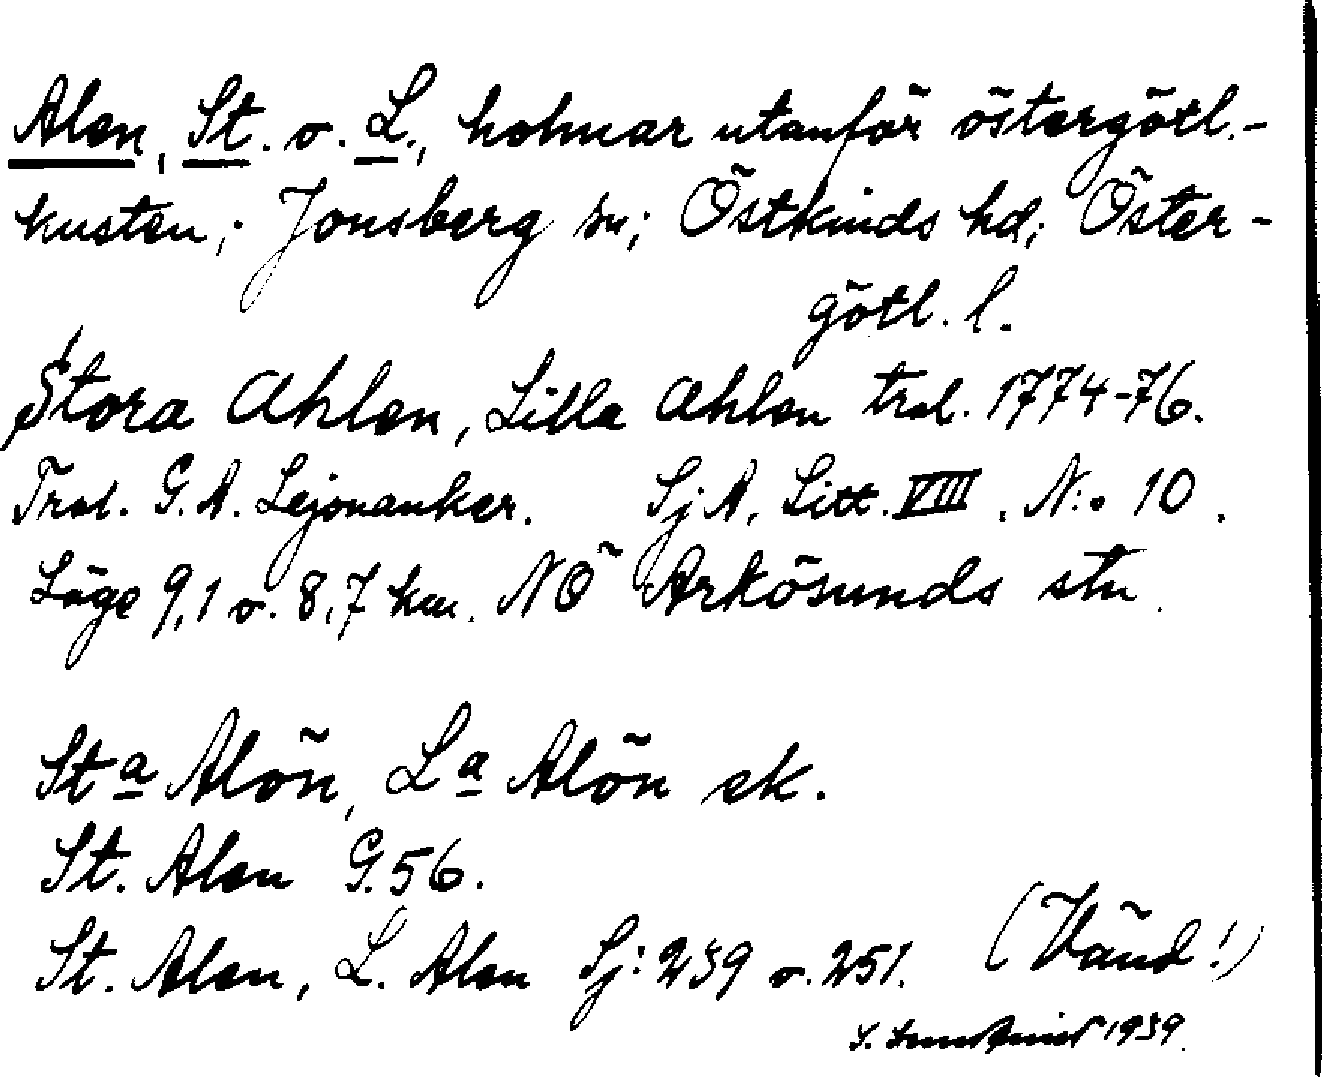 Alen, St. o. L., holmar utanför östergötl.-
kusten; Jonsberg sn; Östkinds hd; Öster-
götl. l.
Stora Ahlen, Lilla Ahlen trol. 1774-76.
Trol. G. A. Lejonanker. SjA, Litt. VIII. N:o 10.
Läge 9,1 o. 8,7 km. NÖ Arkösunds stn.
Sta Alön, La Alön ek.
St. Alen G. 56.
St. Alen, L. Alen Sj: 239 o. 251. (Vänd!)
1939.